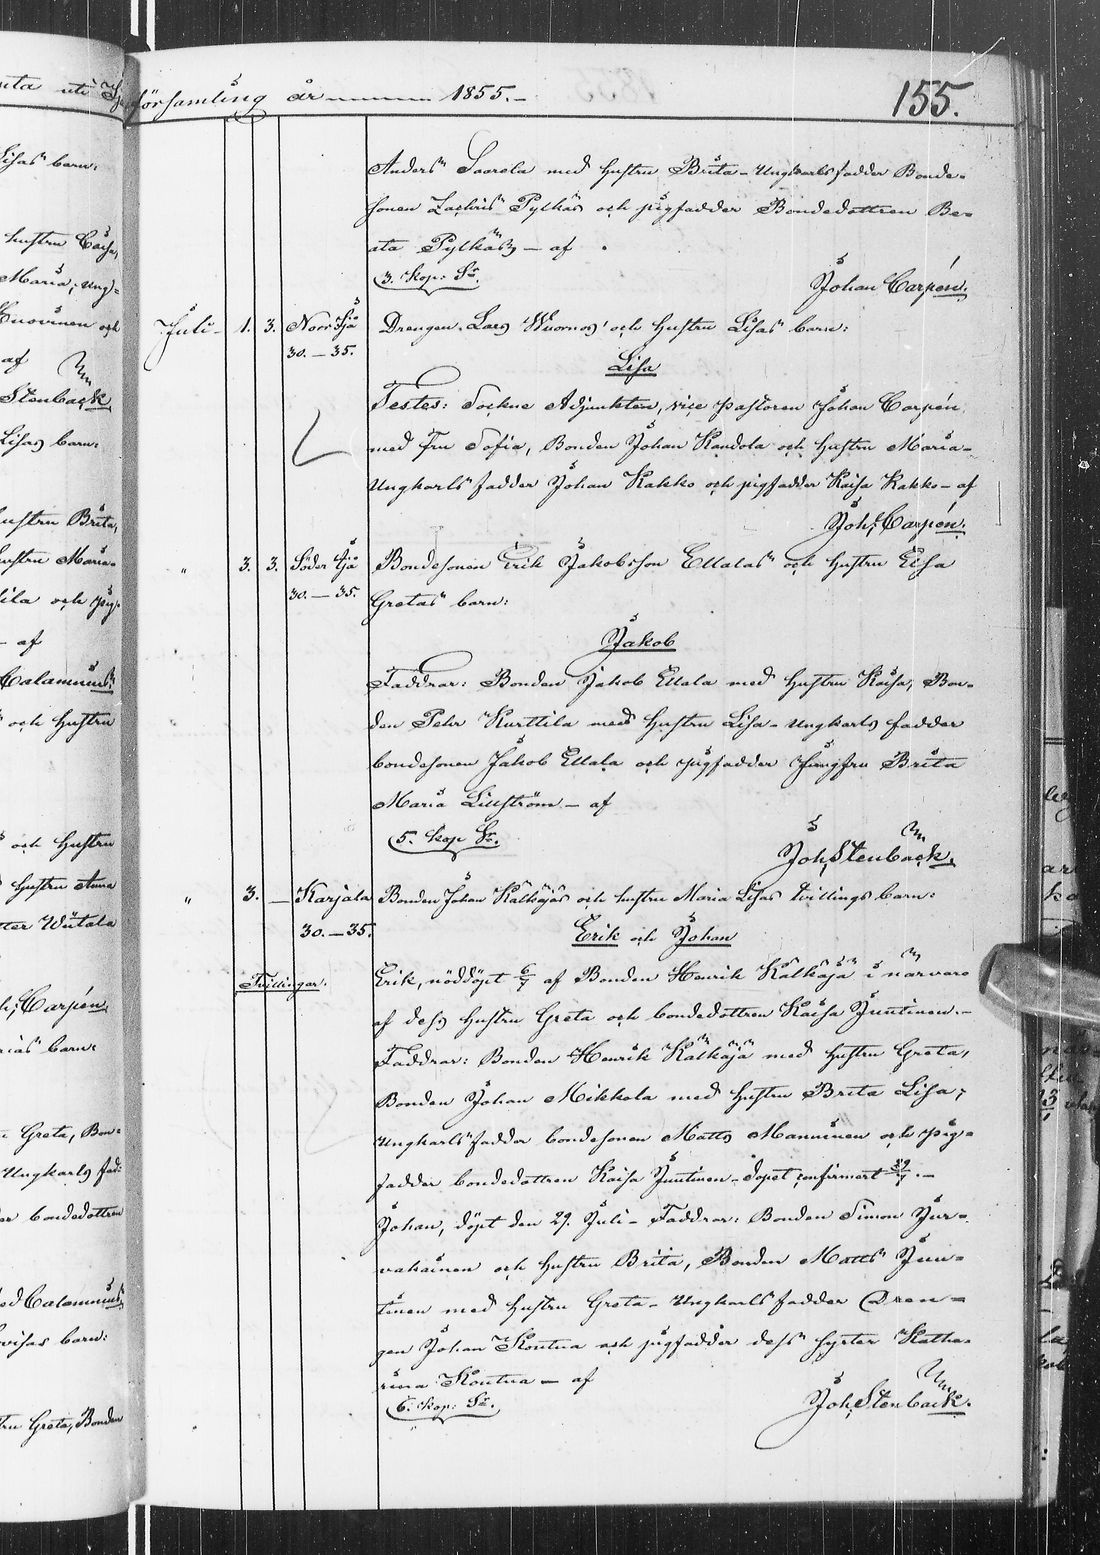 församling år 1855.
155.
Anders Saarela med hustru Brita – Ungkarlsfadder Bonde-
sonen Zachris Pylkäs och pigfadder Bondedottren Be-
ata Pylkäs – af
3. kop: Sr.
Johan Carpén.
Juli 1. 3. Norr Sjö Drengen Lars Wuornos' och hustru Lisas barn:
30.–35.
Lisa
Testes: Sockne Adjunkten, vice pastoren Johan Carpén
med Fru Sofia, Bonden Johan Kandola och hustru Maria –
Ungkarlsfadder Johan Kakko och pigfadder Kaisa Kakko – af
Joh: Carpén.
" 3. 3. Söder Sjö Bondesonen Erik Jakobsson Ellalas och hustru Elsa
30.–35. Gretas barn:
Jakob
Faddrar: Bonden Jakob Ellala med hustru Kaisa, Bon-
den Pehr Kurttila med hustru Lisa – Ungkarls fadder
bondesonen Jakob Ellala och pigfadder Jungfru Brita
Maria Lillström – af
5. kop Sr.
Joh. Stenbäck.
" 3. – Karjala Bonden Johan Kälkäjäs och hustru Maria Lisas tvillings barn:
30.–35. Erik och Johan
Tvillingar. Erik, nöddöpt 6/7 af Bonden Henrik Kälkäjä i närvaro
af dess hustru Greta och bondedottren Kaisa Juntinen. –
Faddrar: Bonden Henrik Kälkäjä med hustru Greta,
Bonden Johan Mikkola med hustru Brita Lisa,
Ungkarlsfadder bondesonen Matts Manninen och pig-
fadder bondedottren Kaisa Juntinen – dopet confirmert 29/7. –
Johan, döpt den 29. Juli – Faddrar: Bonden Simon Jur-
vakainen och hustru Brita, Bonden Matts Jun-
tinen med hustru Greta – Ungkarlsfadder Dren-
gen Johan Kontua och pigfadder dess syster Katha-
rina Kontua – af
6. kop: Sr.
Joh. Stenbäck.